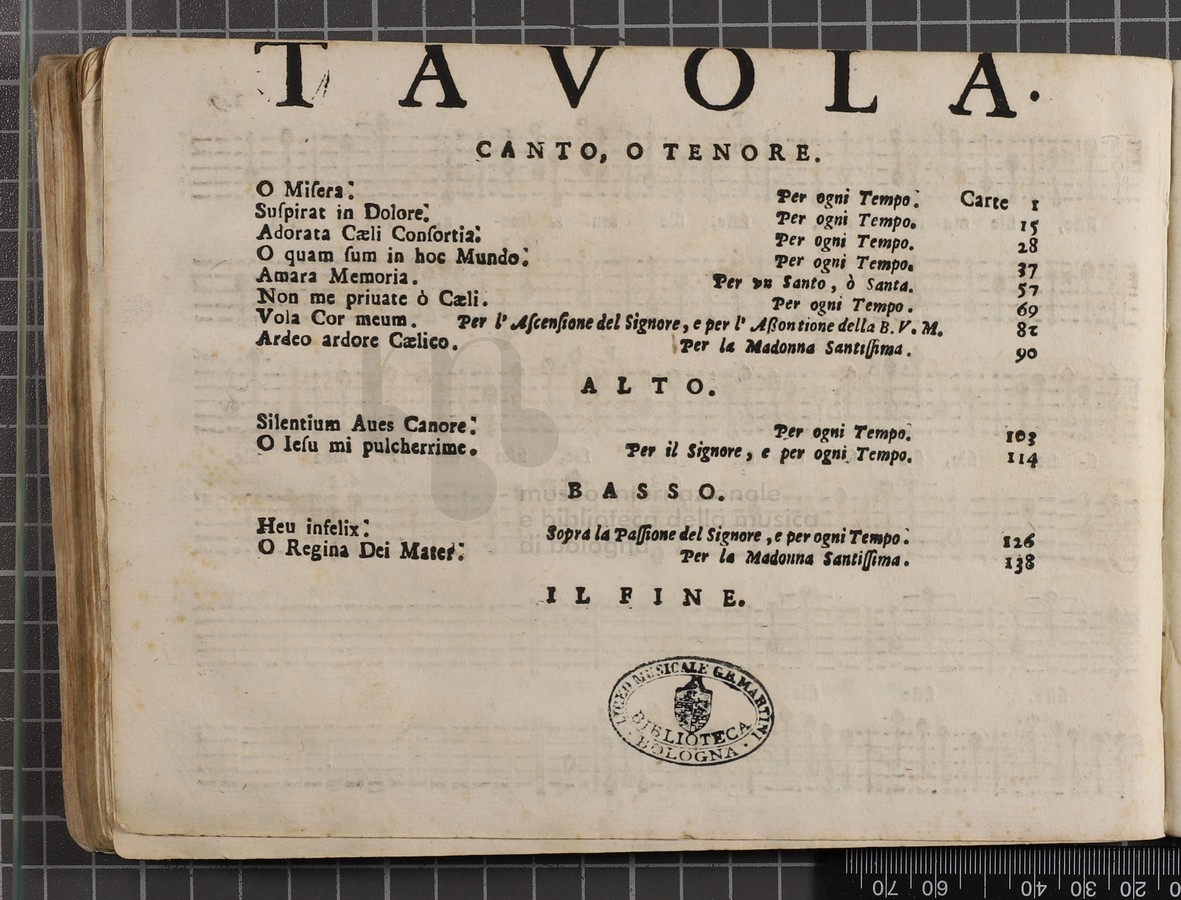 TAVOLA.
CANTO, O TENORE.
O Miſera: Per ogni Tempo: Carte 1
Suſpirat in Dolore: Per ogni Tempo. 15
Adorata Cæli Conſortia: Per ogni Tempo. 28
O quam ſum in hoc Mundo: Per ogni Tempo. 37
Amara Memoria. Per vn Santo, ò Santa. 57
Non me priuate ò Cæli. Per ogni Tempo. 69
Vola Cor meum. Per l'Aſcenſione del Signore, e per l'Aßontione della B. V. M. 81
Ardeo ardore Cælico. Per la Madonna Santiſſima. 90
ALTO.
Silentium Aues Canore: Per ogni Tempo: 103
O Ieſu mi pulcherrime. Per il Signore, e per ogni Tempo. 114
BASSO.
Heu infelix: Sopra la Paſſione del Signore, e per ogni Tempo: 126
O Regina Dei Mater: Per la Madonna Santiſſima. 138
IL FINE.
LICEO MUSICALE G.B. MARTINI
BIBLIOTECA
BOLOGNA
museo internazionale
e biblioteca della musica
di bologna
70 60 40 30 20